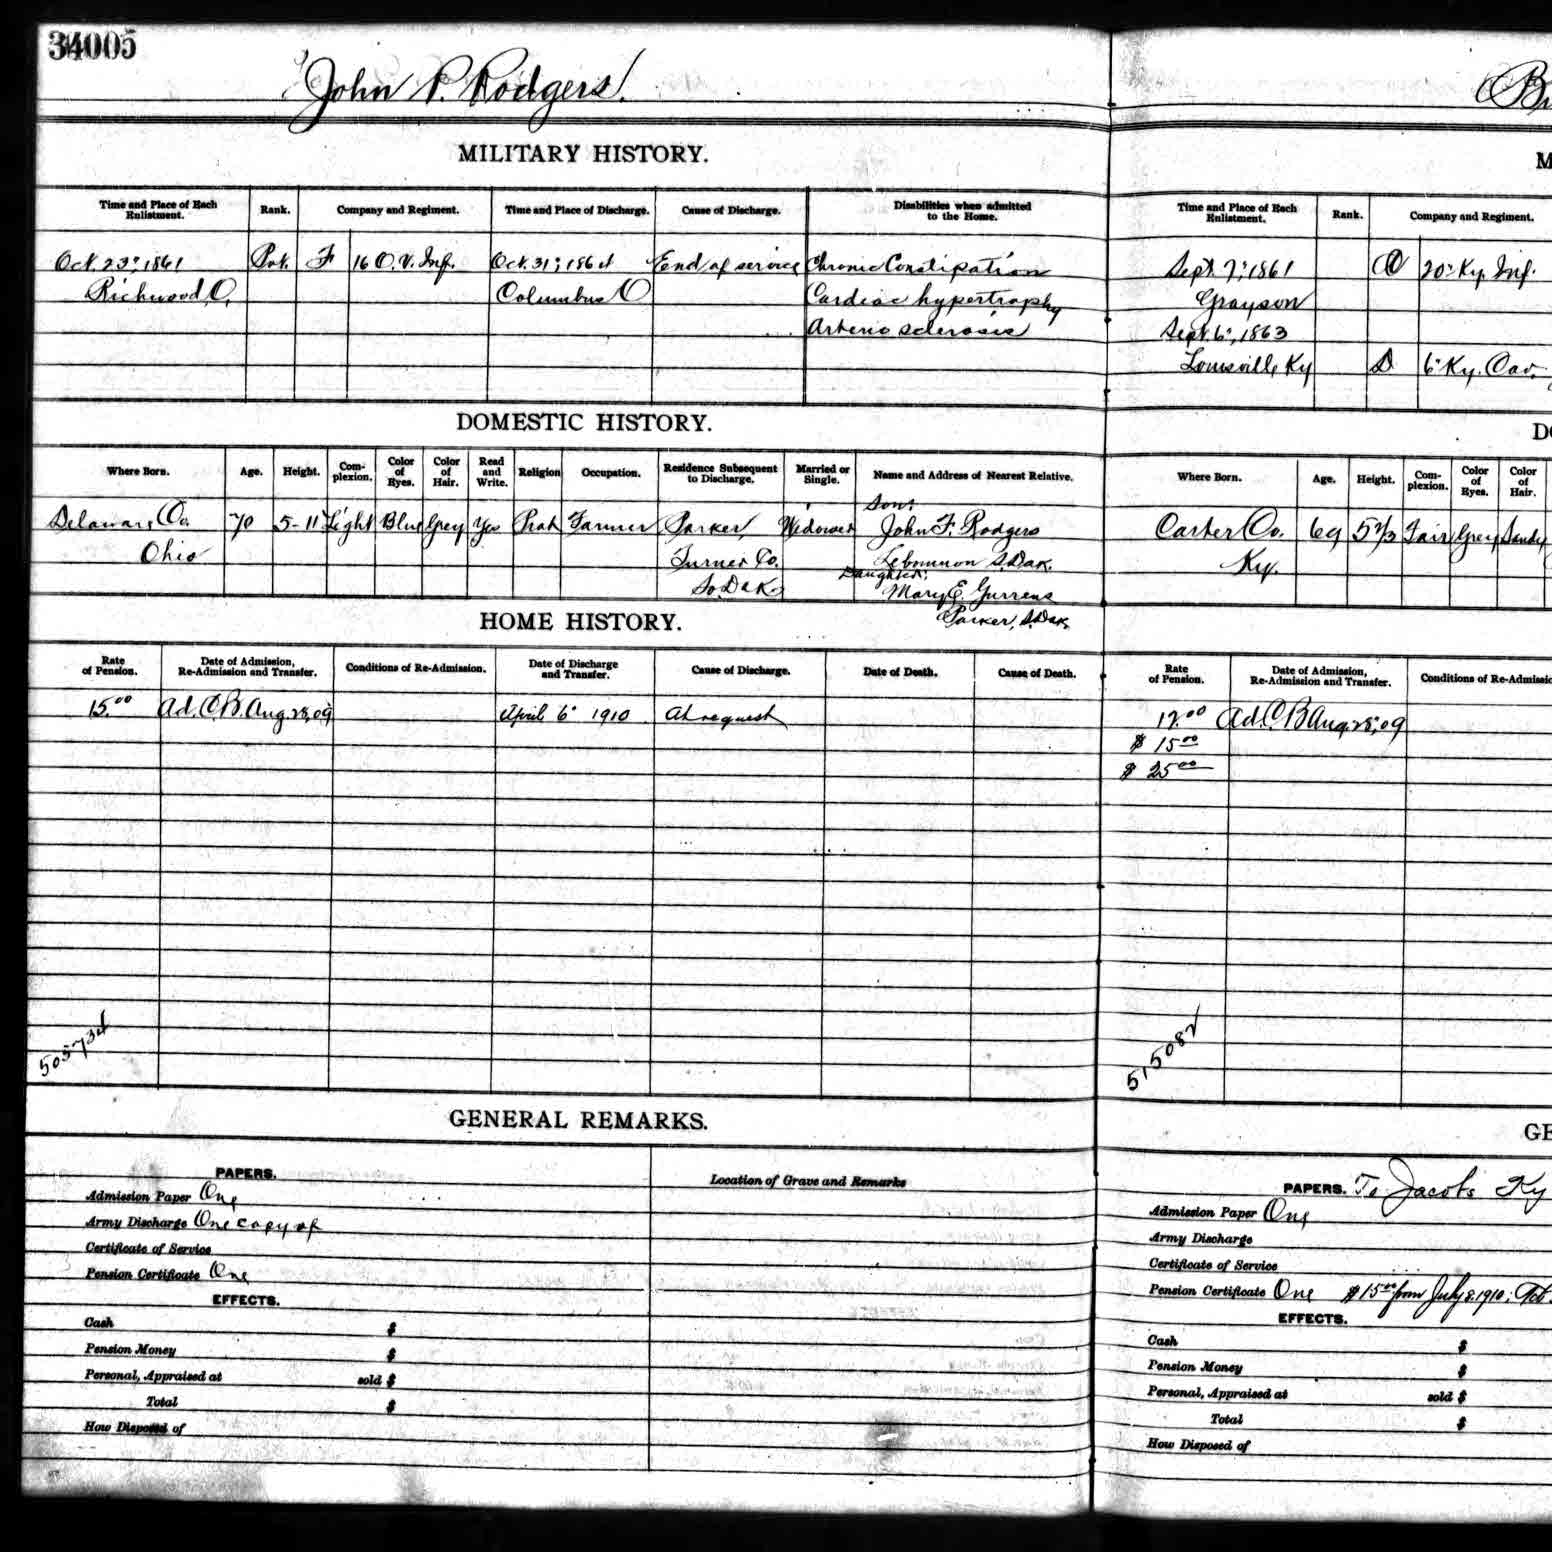 34005
John P. Rodgers.
MILITARY HISTORY.
Time and Place of Each Enlistment. Rank. Company and Regiment. Time and Place of Discharge. Cause of Discharge. Disabilities when admitted to the Home.
Oct. 23", 1861 Pvt. F 16 O.V. Inf. Oct. 31", 1864 End of service Chronic Constipation
Richwood, O. Columbus O Cardiac hypertrophy
Arterio sclerosis
DOMESTIC HISTORY.
Where Born. Age. Height. Complexion. Color of Eyes. Color of Hair. Read and Write. Religion Occupation. Residence Subsequent to Discharge. Married or Single. Name and Address of Nearest Relative.
Son:
Delaware Co. 70 5-11 Light Blue Grey Yes Prot Farmer Parker, Widower John F. Rodgers
Ohio Turner Co. S.Dak.
Daughter:
So.Dak. Mary E.
Parker, S.Dak.
HOME HISTORY.
Rate of Pension. Date of Admission, Re-Admission and Transfer. Conditions of Re-Admission. Date of Discharge and Transfer. Cause of Discharge. Date of Death. Cause of Death.
15.00 Ad. C.B. Aug. 28, 09 April 6" 1910 At request
505734
GENERAL REMARKS.
PAPERS. Location of Grave and Remarks
Admission Paper One
Army Discharge One copy of
Certificate of Service
Pension Certificate One
EFFECTS.
Cash $
Pension Money $
Personal, Appraised at sold $
Total $
How Disposed of
M
Time and Place of Each Enlistment. Rank. Company and Regiment.
Sept. 7", 1861 20" Ky. Inf.
Grayson
Sept. 6", 1863
Louisville, Ky D 6" Ky. Cav.
DO
Where Born. Age. Height. Complexion. Color of Eyes. Color of Hair.
Carter Co. 69 Fair Grey Sandy
Ky.
Rate of Pension. Date of Admission, Re-Admission and Transfer. Conditions of Re-Admissio
12.00 Ad. C.B. Aug. 28", 09
$ 15.00
$ 25.00
515082
GE
PAPERS. To Jacobs Ky
Admission Paper One
Army Discharge
Certificate of Service
Pension Certificate One $15.00 from July 8, 1910;
EFFECTS.
Cash $
Pension Money $
Personal, Appraised at sold $
Total $
How Disposed of